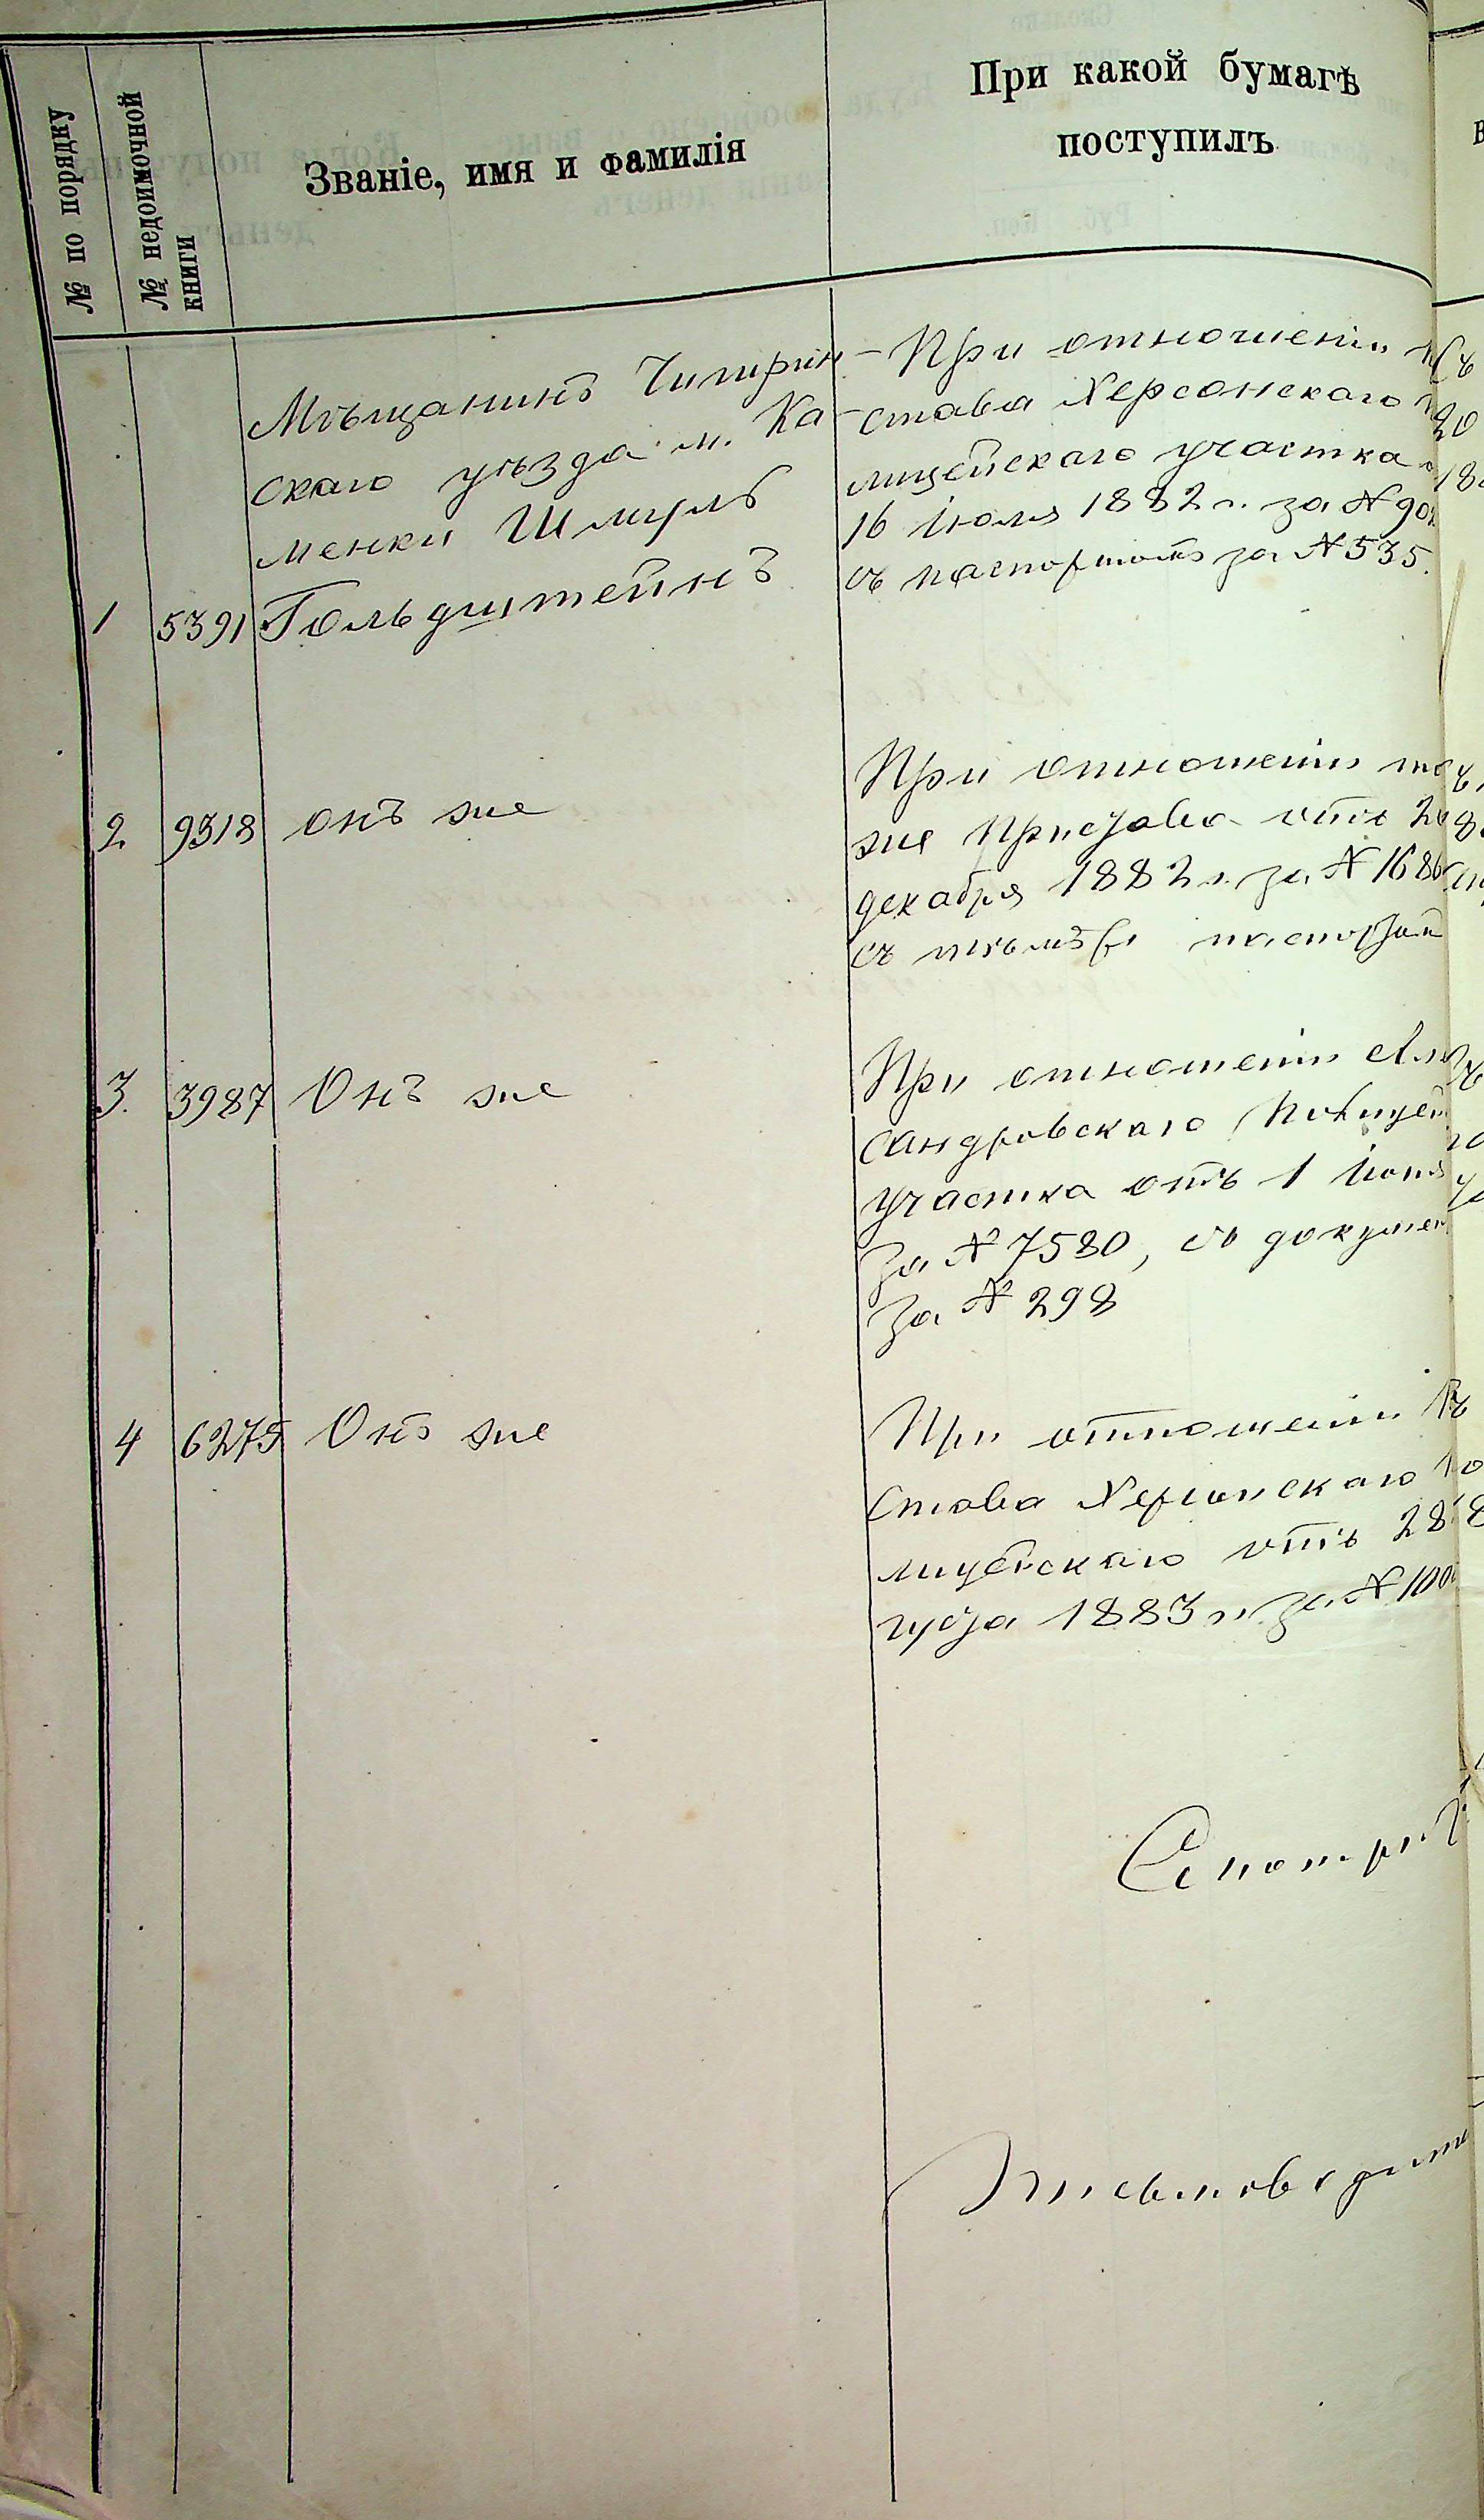 № по порядку
№ недоимочной
книги
Званіе, имя и фамилія
При какой бумагѣ
поступилъ
1
5391
Мѣщанинъ Чигирин
скаго уѣзда м. Ка
менки Шмуль
Гольдштейнъ
При отношеніи
става Херсонскаго
лицейскаго участка
16 Іюля 1882 г. за №
съ паспортомъ за № 535.
2
9318
онъ же
При отношеніи
же Пристава отъ
декабря 1882 г. за №
съ паспортом
3.
3987
Онъ же
При отношеніи Алек
сандровскаго Полицей
участка отъ 1 Іюня
за № 7580, съ докумен
за № 298
4
6275
Онъ же
При отношеніи
става Херсонскаго
лицейскаго отъ 28
густа 1883 г. за №
Письмоводит